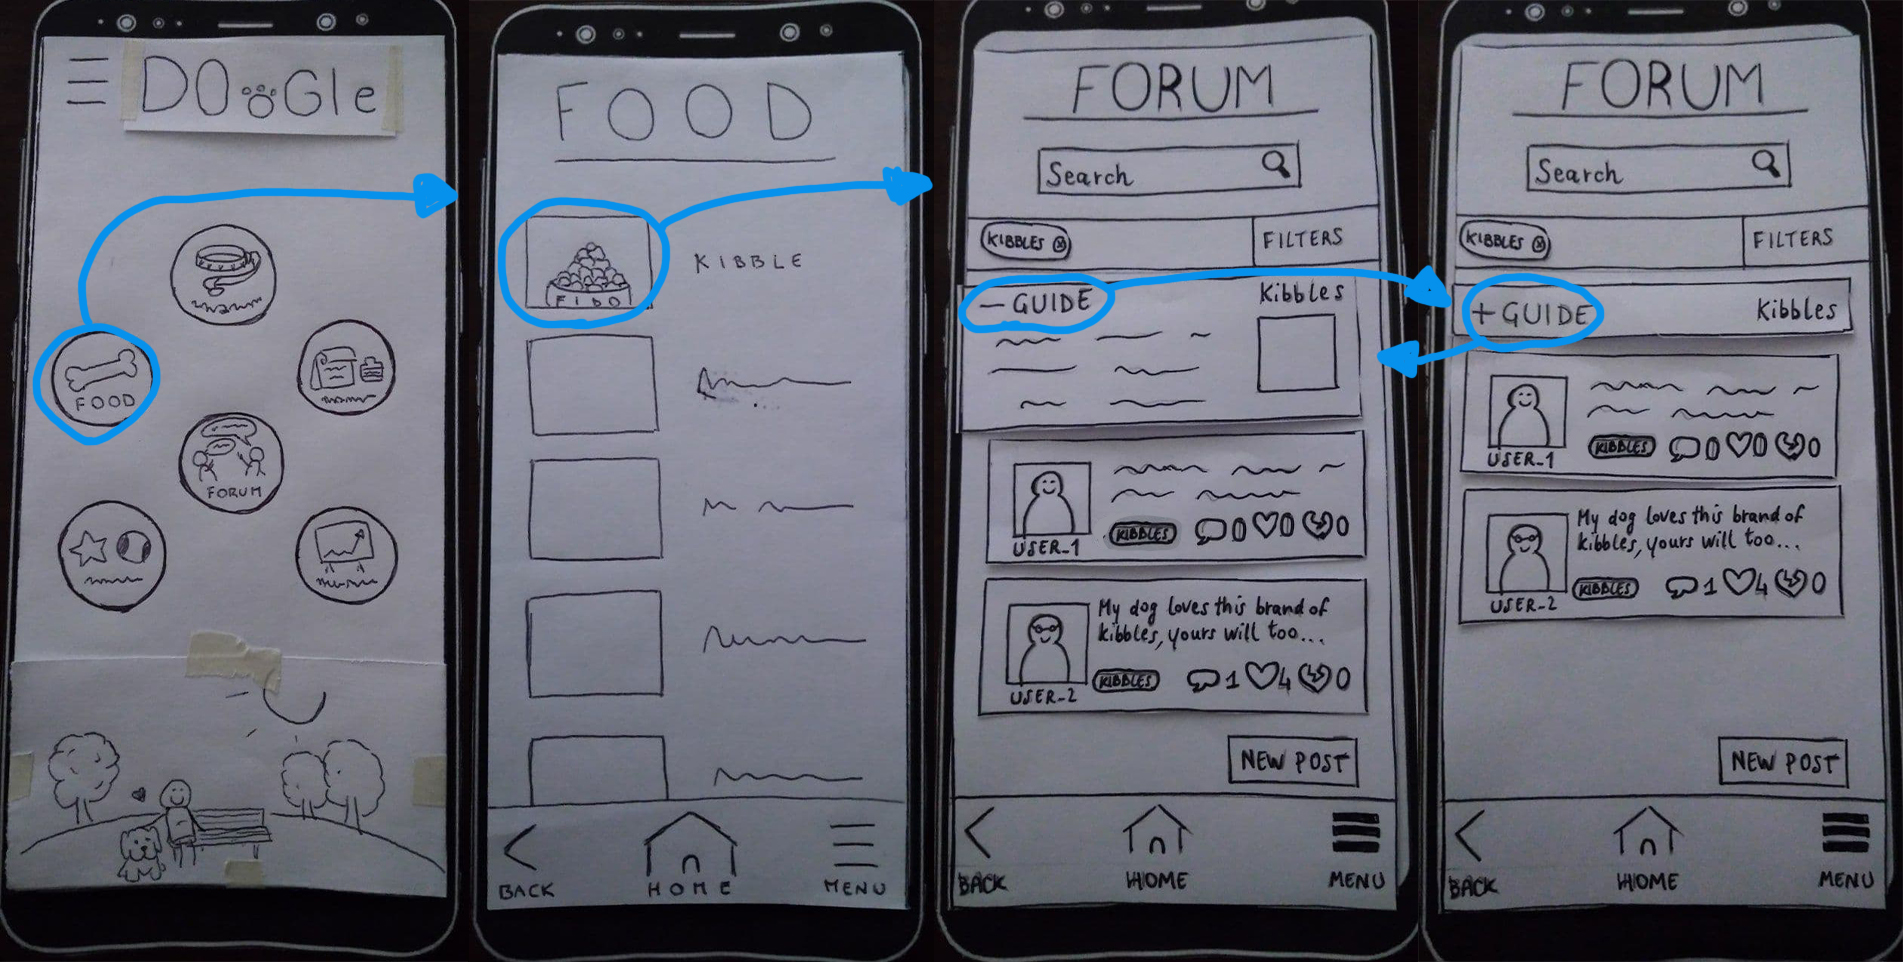 DOGle
FOOD
FORUM
FOOD
KIBBLE
FIDO
BACK
HOME
MENU
FORUM
Search
KIBBLES
FILTERS
— GUIDE
Kibbles
USER_1
KIBBLES
0
0
0
My dog loves this brand of
kibbles, yours will too...
USER_2
KIBBLES
1
4
0
NEW POST
BACK
HOME
MENU
FORUM
Search
KIBBLES
FILTERS
+ GUIDE
Kibbles
USER_1
KIBBLES
0
0
0
My dog loves this brand of
kibbles, yours will too...
USER_2
KIBBLES
1
4
0
NEW POST
BACK
HOME
MENU